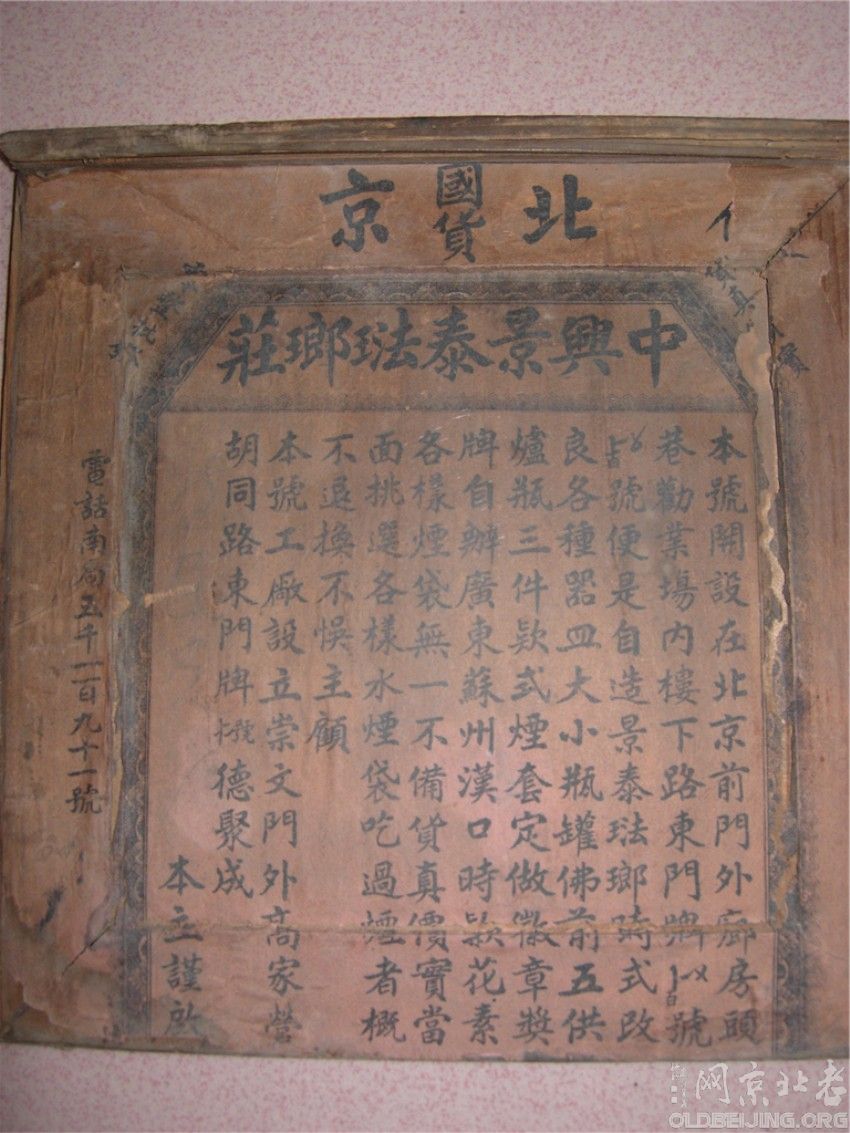 北國貨京
中興景泰琺瑯莊
本號開設在北京前門外廊房頭
巷勸業場內樓下路東門牌號
號便是自造景泰琺瑯時式改
良各種器皿大小瓶罐佛前五供
爐瓶三件欵式煙套定做徽章獎
牌自辦廣東蘇州漢口時欵花素
各樣煙袋無一不備貨真價實當
面挑選各樣水煙袋吃過煙者概
不退換不悞主顧
本號工廠設立崇文門外高家營
胡同路東門牌德聚成
本主謹啟
電話南局五千一百九十一號
老北京网
OLDBEIJING.ORG